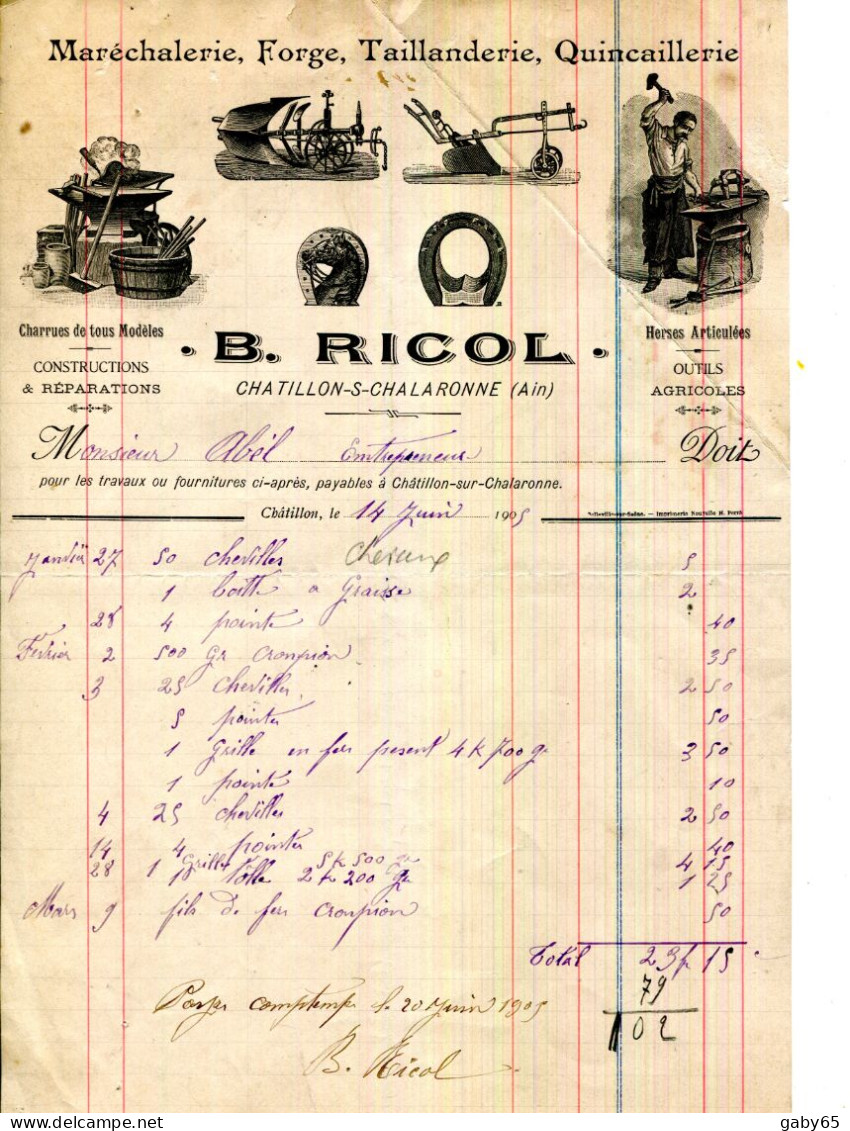 Maréchalerie, Forge, Taillanderie, Quincaillerie
Charrues de tous Modèles
CONSTRUCTIONS
& RÉPARATIONS
Herses Articulées
OUTILS
AGRICOLES
· B. RICOL ·
CHATILLON-S-CHALARONNE (Ain)
Monsieur Abél Entrepreneur Doit
pour les travaux ou fournitures ci-après, payables à Châtillon-sur-Chalaronne.
Châtillon, le 14 Juin 1905
Belleville-sur-Saône. — Imprimerie Nouvelle M. Perré
Janvié 27 50 chevilles 5
1 boitte a Graisse 2
28 4 pointe 40
Février 2 500 Gr cronpion 35
3 25 chevilles 2 50
5 pointes 50
1 Grille en fer pesent 4 K 700 gr 3 50
1 pointe 10
4 25 chevilles 2 50
14 4 pointes 40
28 1 Grille 5 K 500 gr 4 15
1 Tôlle 2 K 200 gr 1 25
Mars 9 fils de fer cronpion 50
Total 23f 15
79
102
le 20 Juin 1905
B. Ricol
gaby65